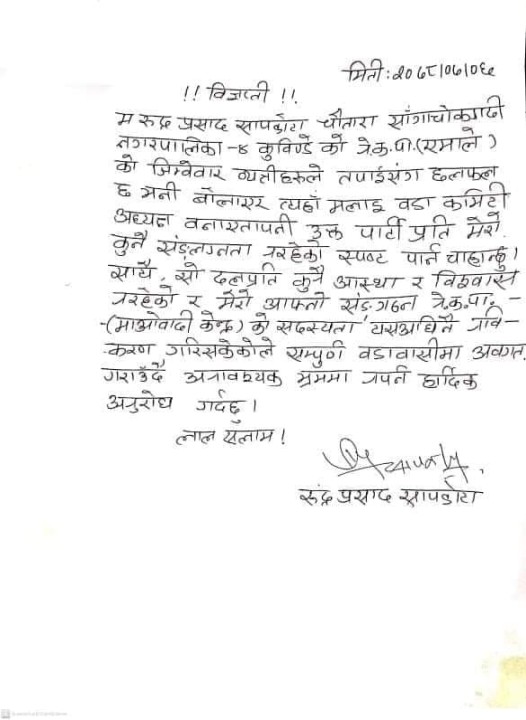 मिती: २०७८।०७।०६
!! विज्ञप्ती !!
म रुद्र प्रसाद सापकोटा चौतारा साँगाचोकगढी
नगरपालिका -४ कुविण्डे को ने.क.पा.(एमाले)
को जिम्मेवार व्यक्तीहरुले तपाईसंग छलफल
छ भनी बोलाएर त्यहाँ मलाइ वडा कमिटी
अध्यक्ष बनाएतापनी उक्त पार्टी प्रति मेरो
कुनै संङ्लग्नता नरहेको स्पष्ट पार्न चाहान्छु।
साथै, सो दलप्रति कुनै आस्था र विश्वास
नरहेको र मेरो आफ्नो संङ्गठन ने.क.पा. -
-(माओवादी केन्द्र) को सदस्यता यसअघिनै नवि-
-करण गरिसकेकोले सम्पुर्ण वडावासीमा अवगत
गराउँदै अनावश्यक भ्रममा नपर्न हार्दिक
अनुरोध गर्दछु।
लाल सलाम!
रुद्र प्रसाद सापकोटा